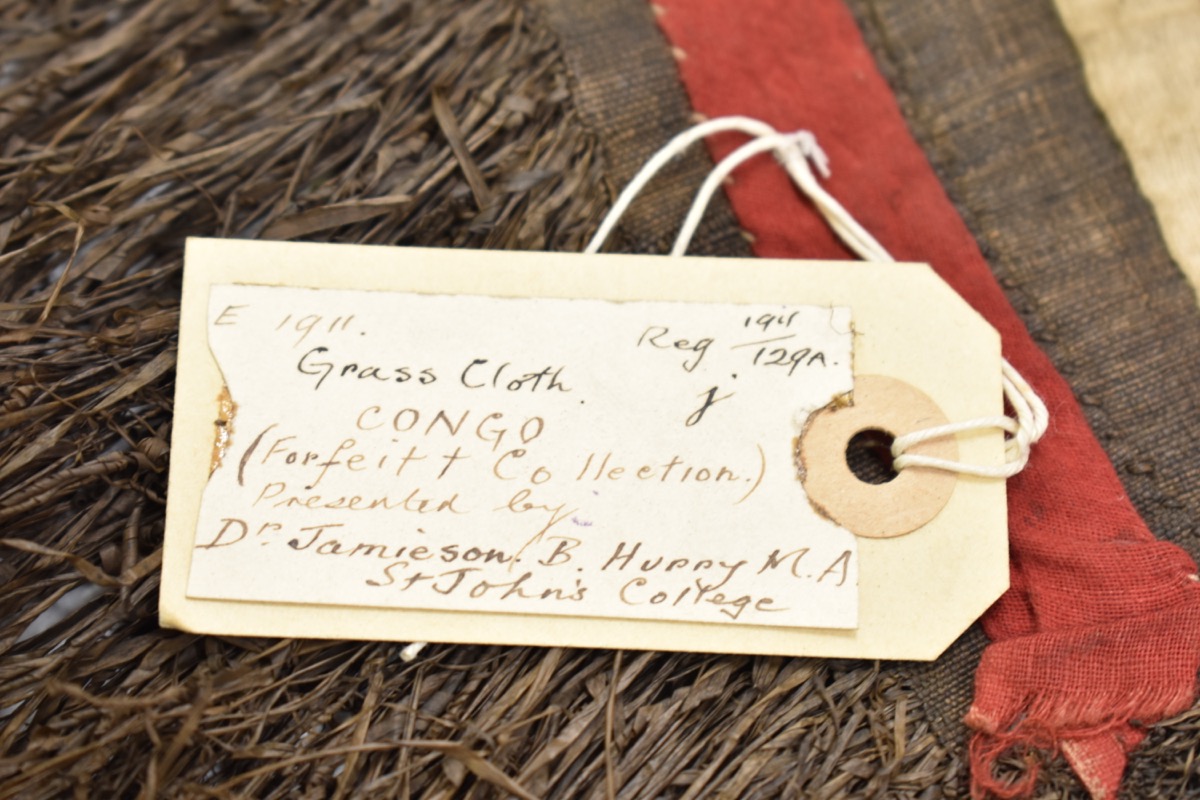 E 1911. Reg 1911/129A.
Grass Cloth. j
CONGO
(Forfeitt Collection.)
Presented by
Dr. Jamieson. B. Hurry M.A
St John's College